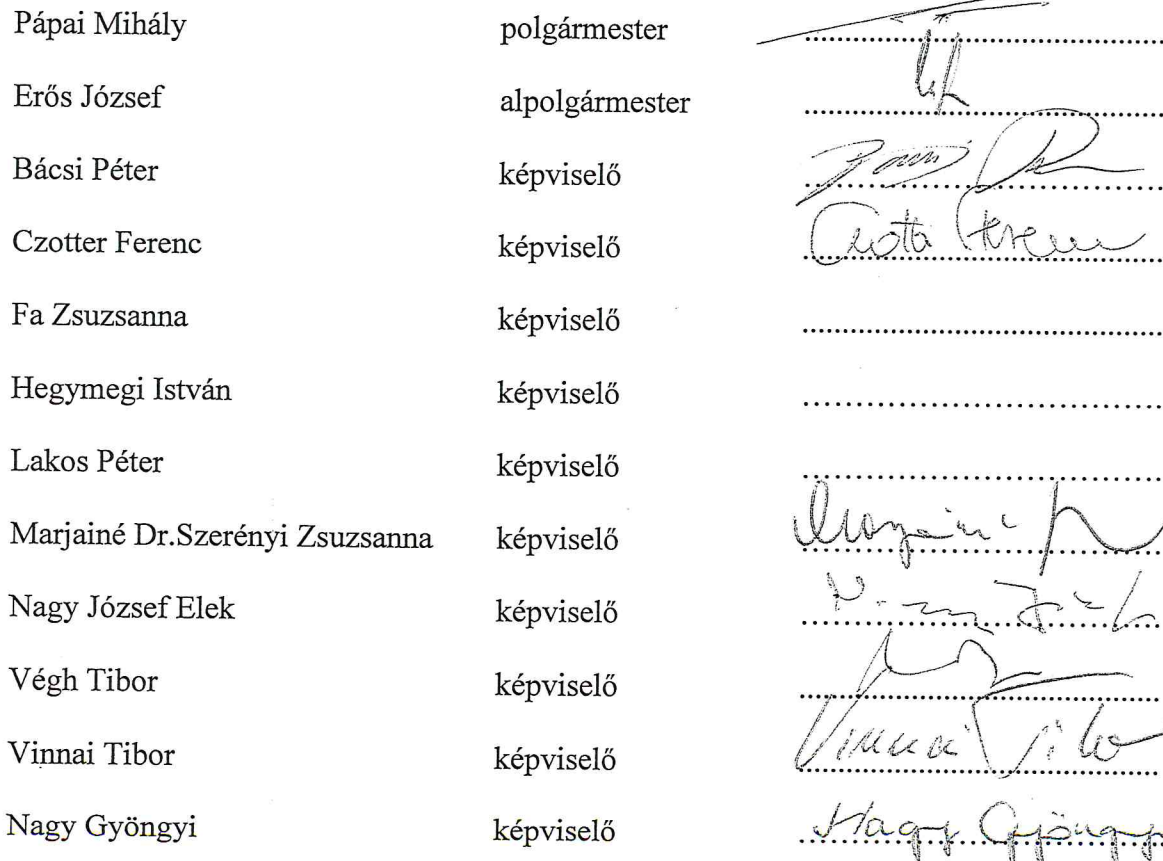 Pápai Mihály polgármester
Erős József alpolgármester
Bácsi Péter képviselő
Czotter Ferenc képviselő Czotter Ferenc
Fa Zsuzsanna képviselő
Hegymegi István képviselő
Lakos Péter képviselő
Marjainé Dr.Szerényi Zsuzsanna képviselő
Nagy József Elek képviselő
Végh Tibor képviselő
Vinnai Tibor képviselő Vinnai Tibor
Nagy Gyöngyi képviselő Nagy Gyöngyi